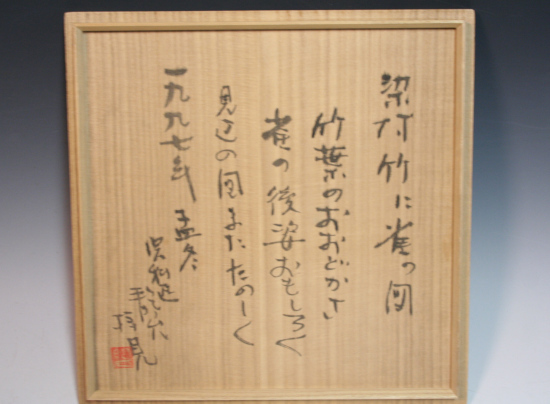 染付竹に雀の図
竹葉のおおどかさ
雀の後姿おもしろく
見返の図またたのしく
一九九七年 孟冬